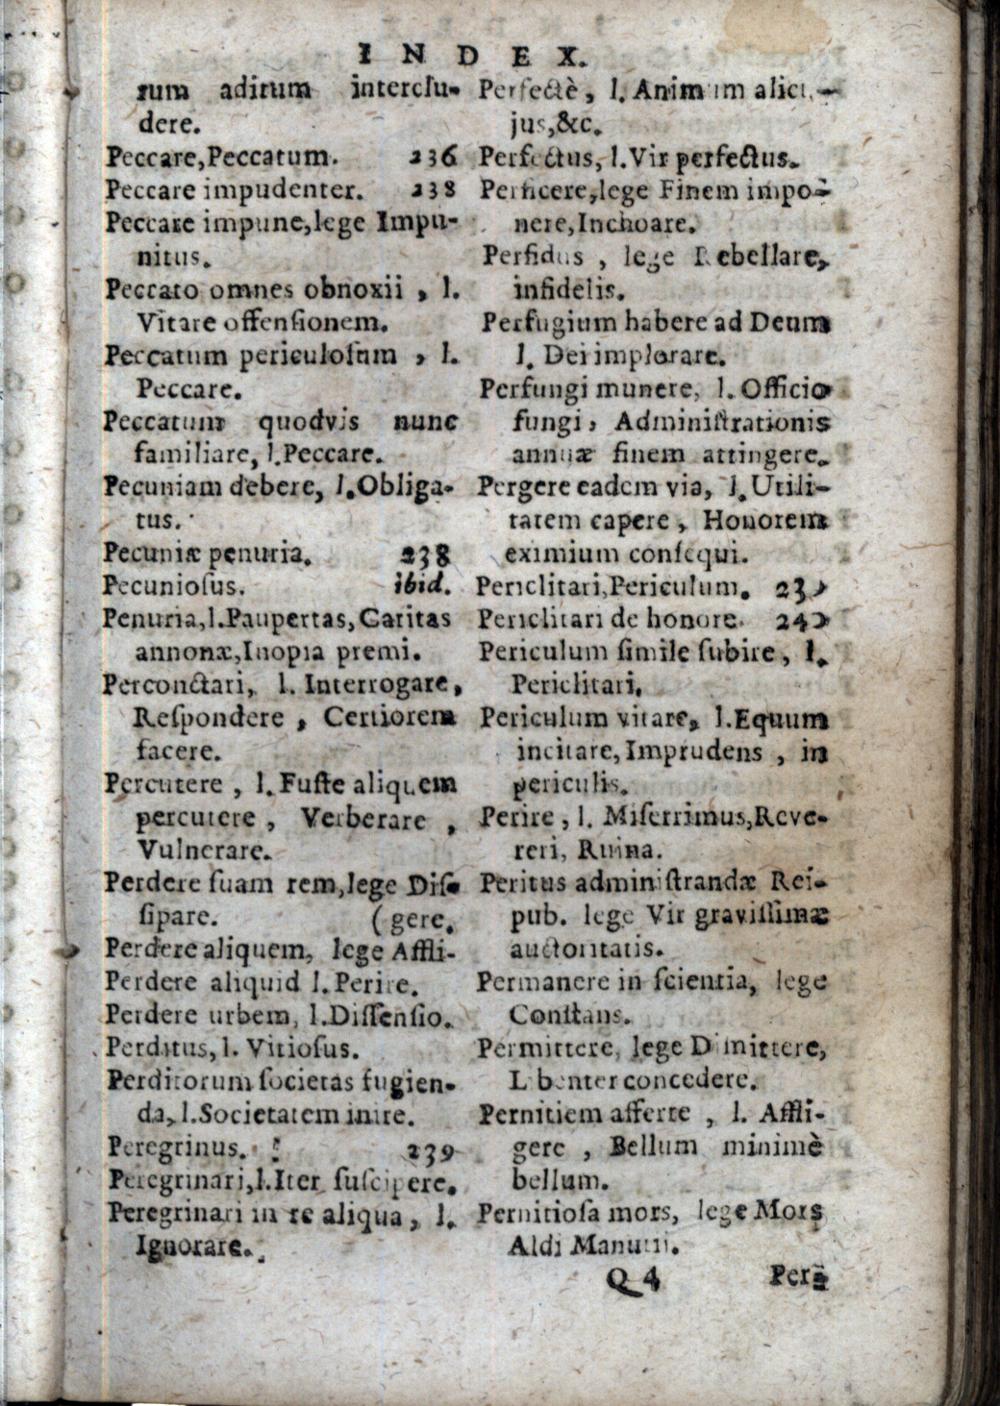 INDEX.
rum aditum interclu-
dere.
Peccare, Peccatum. 236
Peccare impudenter. 238
Peccare impune, lege Impu-
nitus.
Peccato omnes obnoxii, l.
Vitare offenſionem.
Peccatum periculoſum, l.
Peccare.
Peccatum quodvis nunc
familiare, l. Peccare.
Pecuniam debere, l. Obliga-
tus.
Pecuniæ penuria. 238
Pecunioſus. ibid.
Penuria, l. Paupertas, Caritas
annonæ, Inopia premi.
Perconctari, l. Interrogare,
Reſpondere, Certiorem
facere.
Percutere, l. Fuſte aliquem
percutere, Verberare,
Vulnerare.
Perdere ſuam rem, lege Diſ-
ſipare. (gere.
Perdere aliquem, lege Affli-
Perdere aliquid l. Perire.
Perdere urbem, l. Diſſenſio.
Perditus, l. Vitioſus.
Perditorum ſocietas fugien-
da, l. Societatem inire.
Peregrinus. 239
Peregrinari, l. Iter ſuſcipere.
Peregrinari in re aliqua, l.
Ignorare.
Perfectè, l. Animum alicu-
jus, &c.
Perfectus, l. Vir perfectus.
Perficere, lege Finem impo-
nere, Inchoare.
Perfidus, lege Rebellare,
infidelis.
Perfugium habere ad Deum
l. Dei implorare.
Perfungi munere, l. Officio
fungi, Adminiſtrationis
annuæ finem attingere.
Pergere eadem via, l. Utili-
tatem capere, Honorem
eximium conſequi.
Periclitari, Periculum.
Periclitari de honore.
Periculum ſimile ſubire, l.
Periclitari.
Periculum vitare, l. Equum
incitare, Imprudens, in
periculis.
Perire, l. Miſerrimus, Reve-
reri, Ruina.
Peritus adminiſtrandæ Rei-
pub. lege Vir graviſſimæ
auctoritatis.
Permanere in ſcientia, lege
Conſtans.
Permittere, lege Dimittere,
Libenter concedere.
Pernitiem afferre, l. Affli-
gere, Bellum minimè
bellum.
Pernitioſa mors, lege Mors
Aldi Manutii.
Q4 Per-